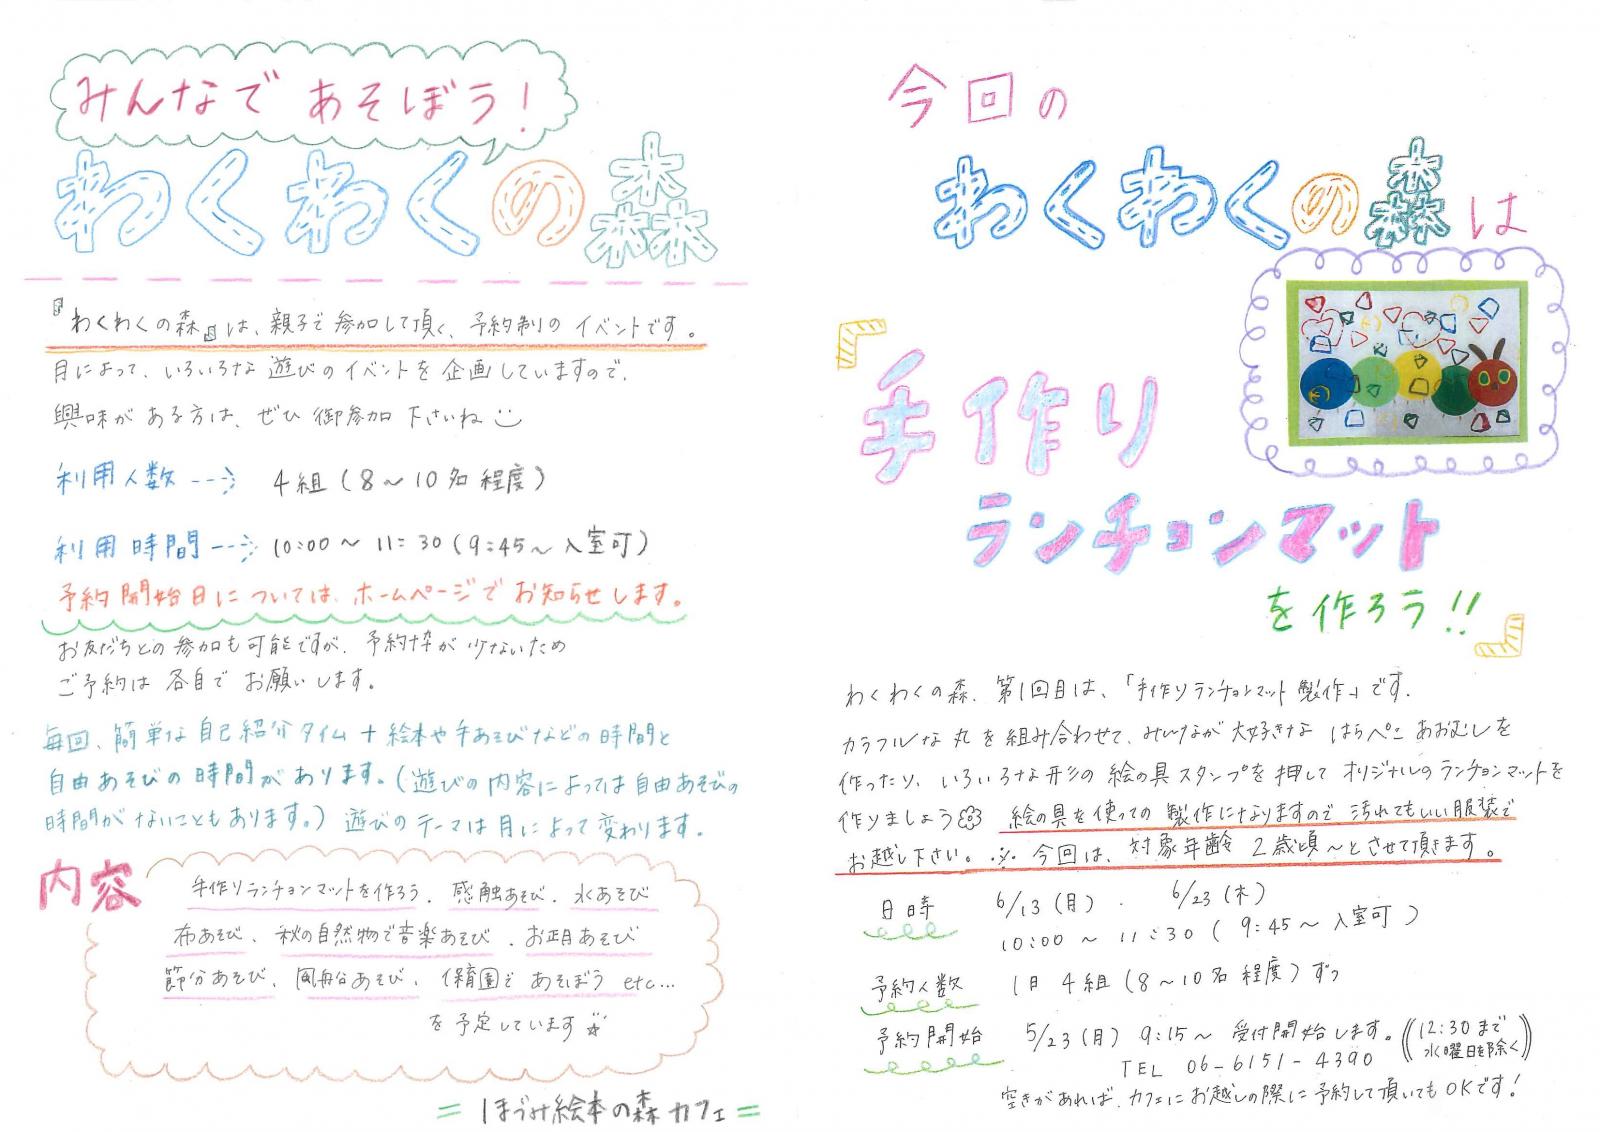 みんなで あそぼう!
わくわくの森
『わくわくの森』は、親子で参加して頂く、予約制のイベントです。
月によって、いろいろな遊びのイベントを企画していますので、
興味がある方は、ぜひ御参加下さいね
利用人数 --> 4組(8〜10名程度)
利用時間 --> 10:00〜11:30(9:45〜入室可)
予約開始日については、ホームページでお知らせします。
お友だちとの参加も可能ですが、予約枠が少ないため
ご予約は各自でお願いします。
毎回、簡単な自己紹介タイム+絵本や手あそびなどの時間と
自由あそびの時間があります。(遊びの内容によっては自由あそびの
時間がないこともあります。)遊びのテーマは月によって変わります。
内容
手作りランチョンマットを作ろう、感触あそび、水あそび
布あそび、秋の自然物で音楽あそび、お正月あそび
節分あそび、風船あそび、保育園であそぼう etc...
を予定しています☆
= ほづみ絵本の森カフェ =
今回の
わくわくの森は
『手作り
ランチョンマット
を作ろう!!』
わくわくの森、第1回目は、「手作りランチョンマット製作」です。
カラフルな丸を組み合わせて、みんなが大好きなはらぺこあおむしを
作ったり、いろいろな形の絵の具スタンプを押してオリジナルのランチョンマットを
作りましょう 絵の具を使っての製作になりますので汚れてもいい服装で
お越し下さい。※今回は、対象年齢2歳頃〜とさせて頂きます。
日時 6/13(月)、6/23(木)
10:00〜11:30(9:45〜入室可)
予約人数 1日4組(8〜10名程度)ずつ
予約開始 5/23(月)9:15〜受付開始します。((12:30まで
水曜日を除く))
TEL 06-6151-4390
空きがあれば、カフェにお越しの際に予約して頂いてもOKです!